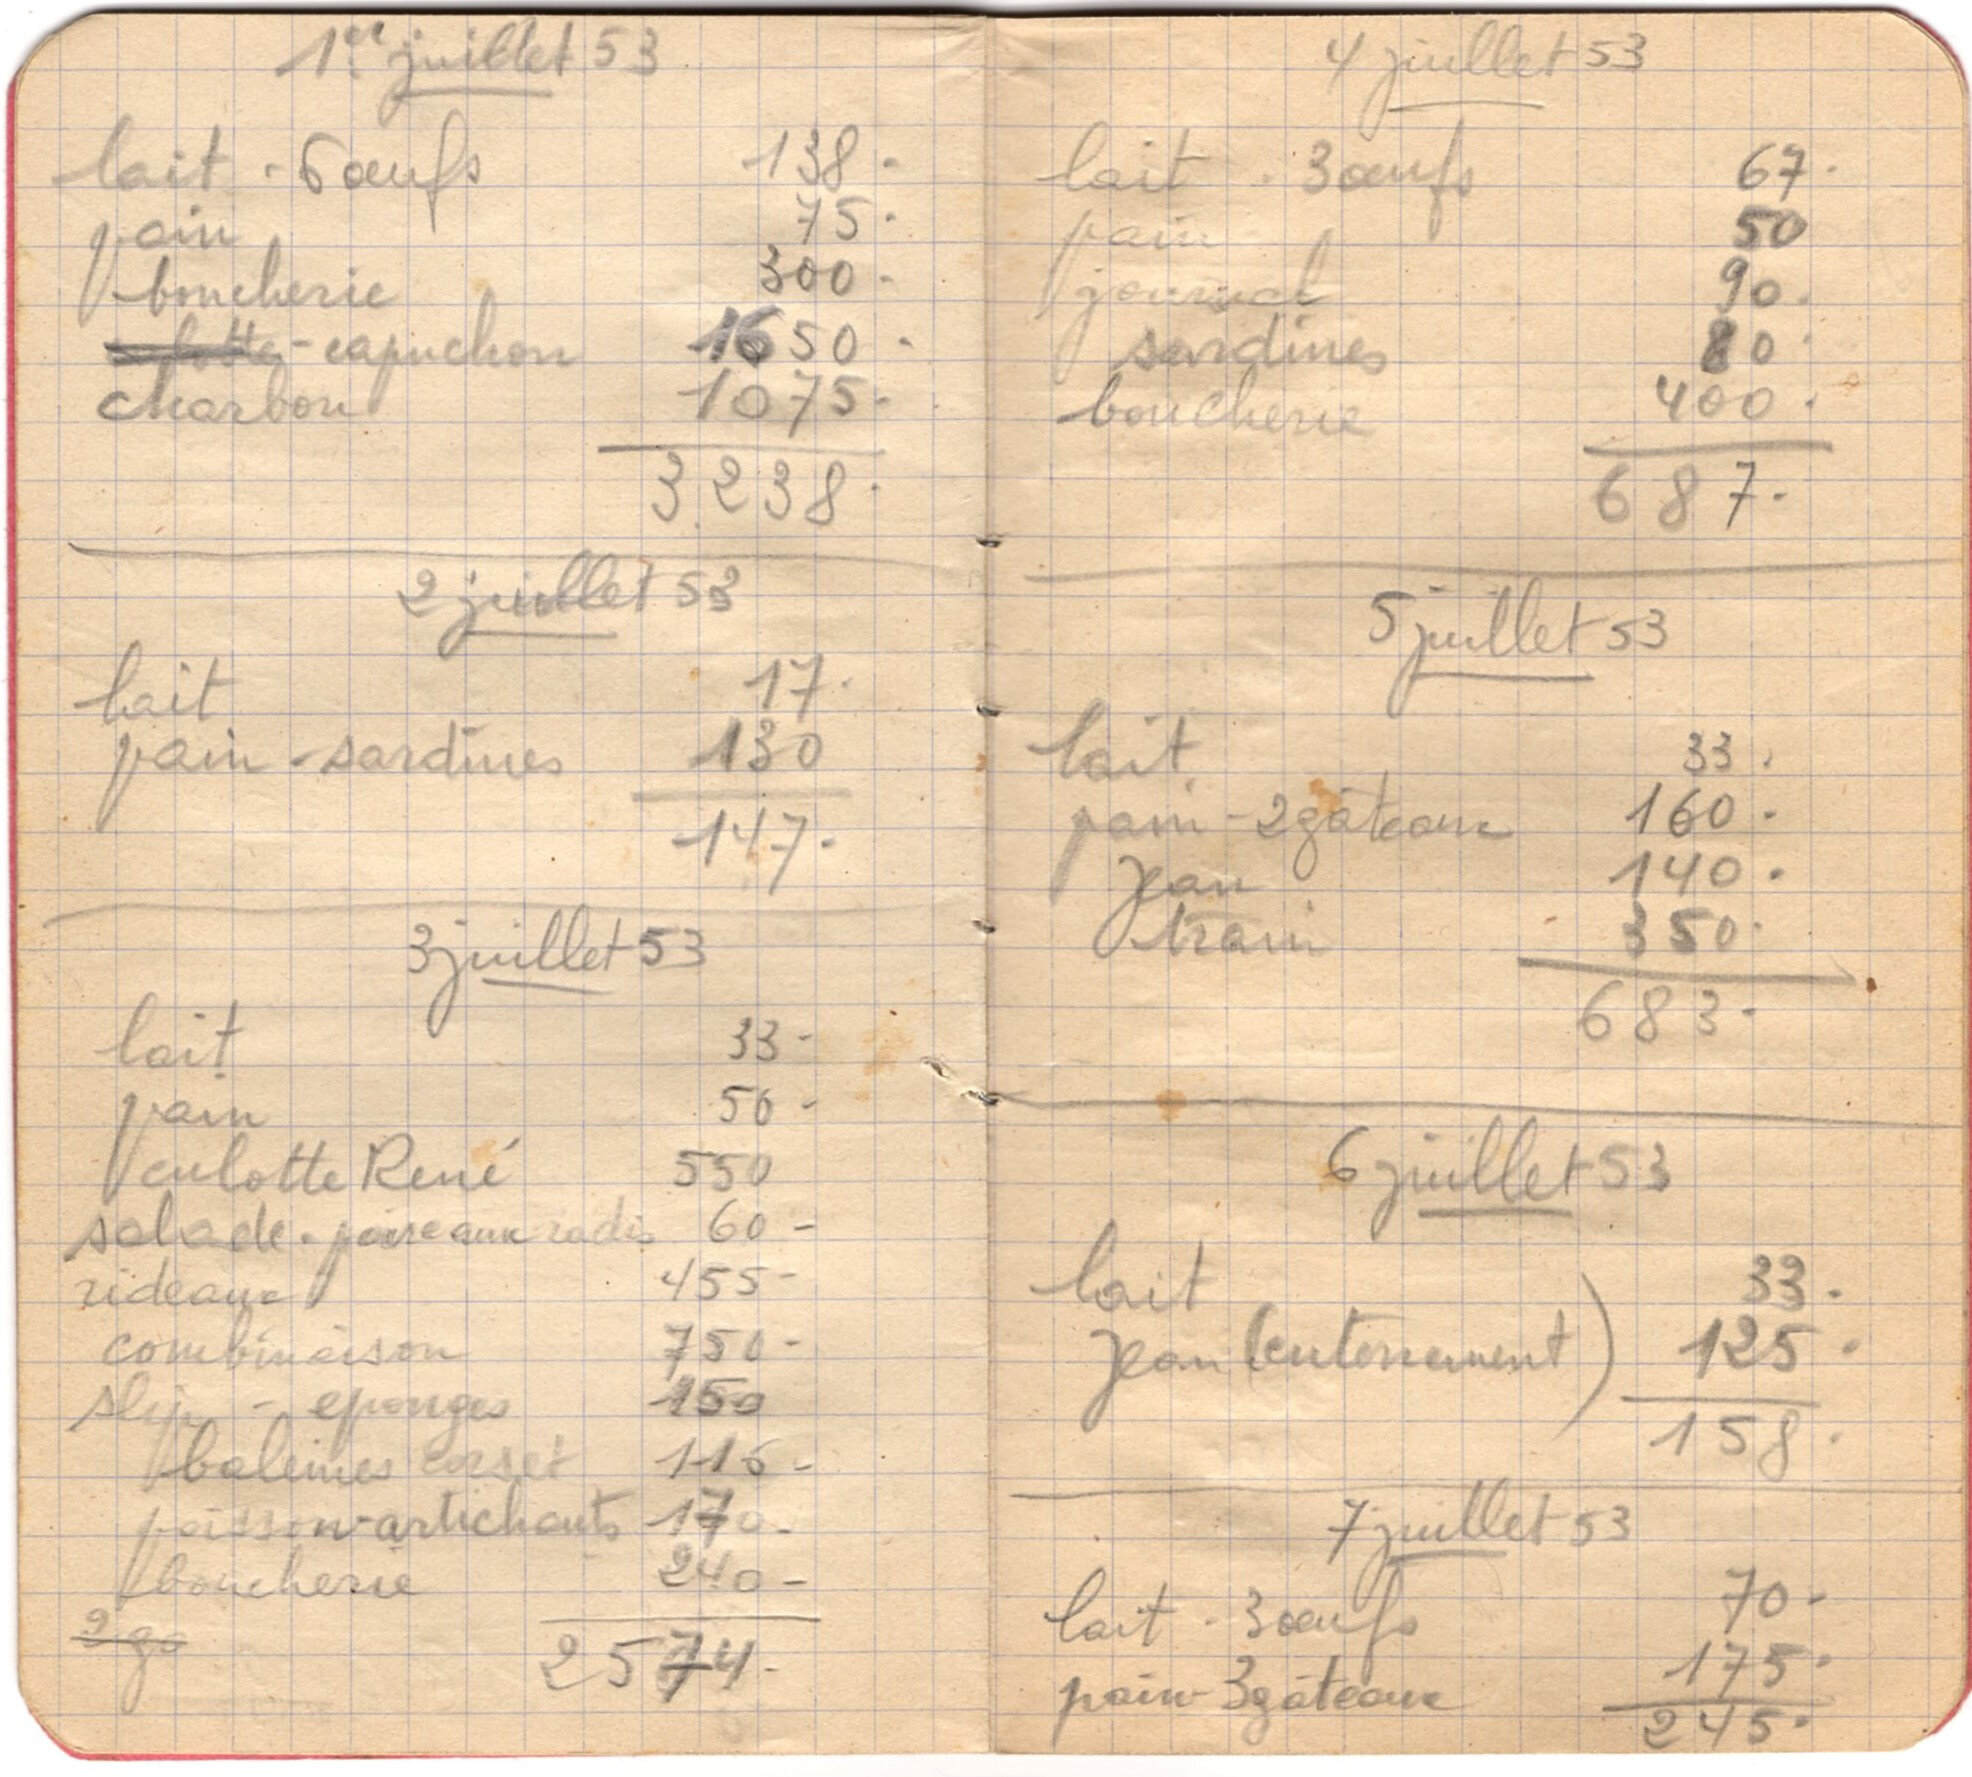 1er juillet 53
lait - 6 œufs 138 -
pain 75 -
boucherie 300 -
culotte - capuchon 1650 -
charbon 1075 -
3238 -
2 juillet 53
lait 17 -
pain - sardines 130
147 -
3 juillet 53
lait 33 -
pain 50 -
culotte René 550
salade - poireaux radis 60 -
rideaux 455 -
combinaison 750 -
slip - eponges 150
baleines corset 116 -
poisson - artichauts 170 -
boucherie 240 -
2 gâ
2574 -
4 juillet 53
lait - 3 œufs 67 -
pain 50
journal 90 -
sardines 80 -
boucherie 400 -
687 -
5 juillet 53
lait 33 -
pain - 2 gâteaux 160 -
Jean 140 -
train 350 -
683 -
6 juillet 53
lait 33 -
Jean (enterrement) 125 -
158 -
7 juillet 53
lait - 3 œufs 70 -
pain - 3 gâteaux 175 -
245 -